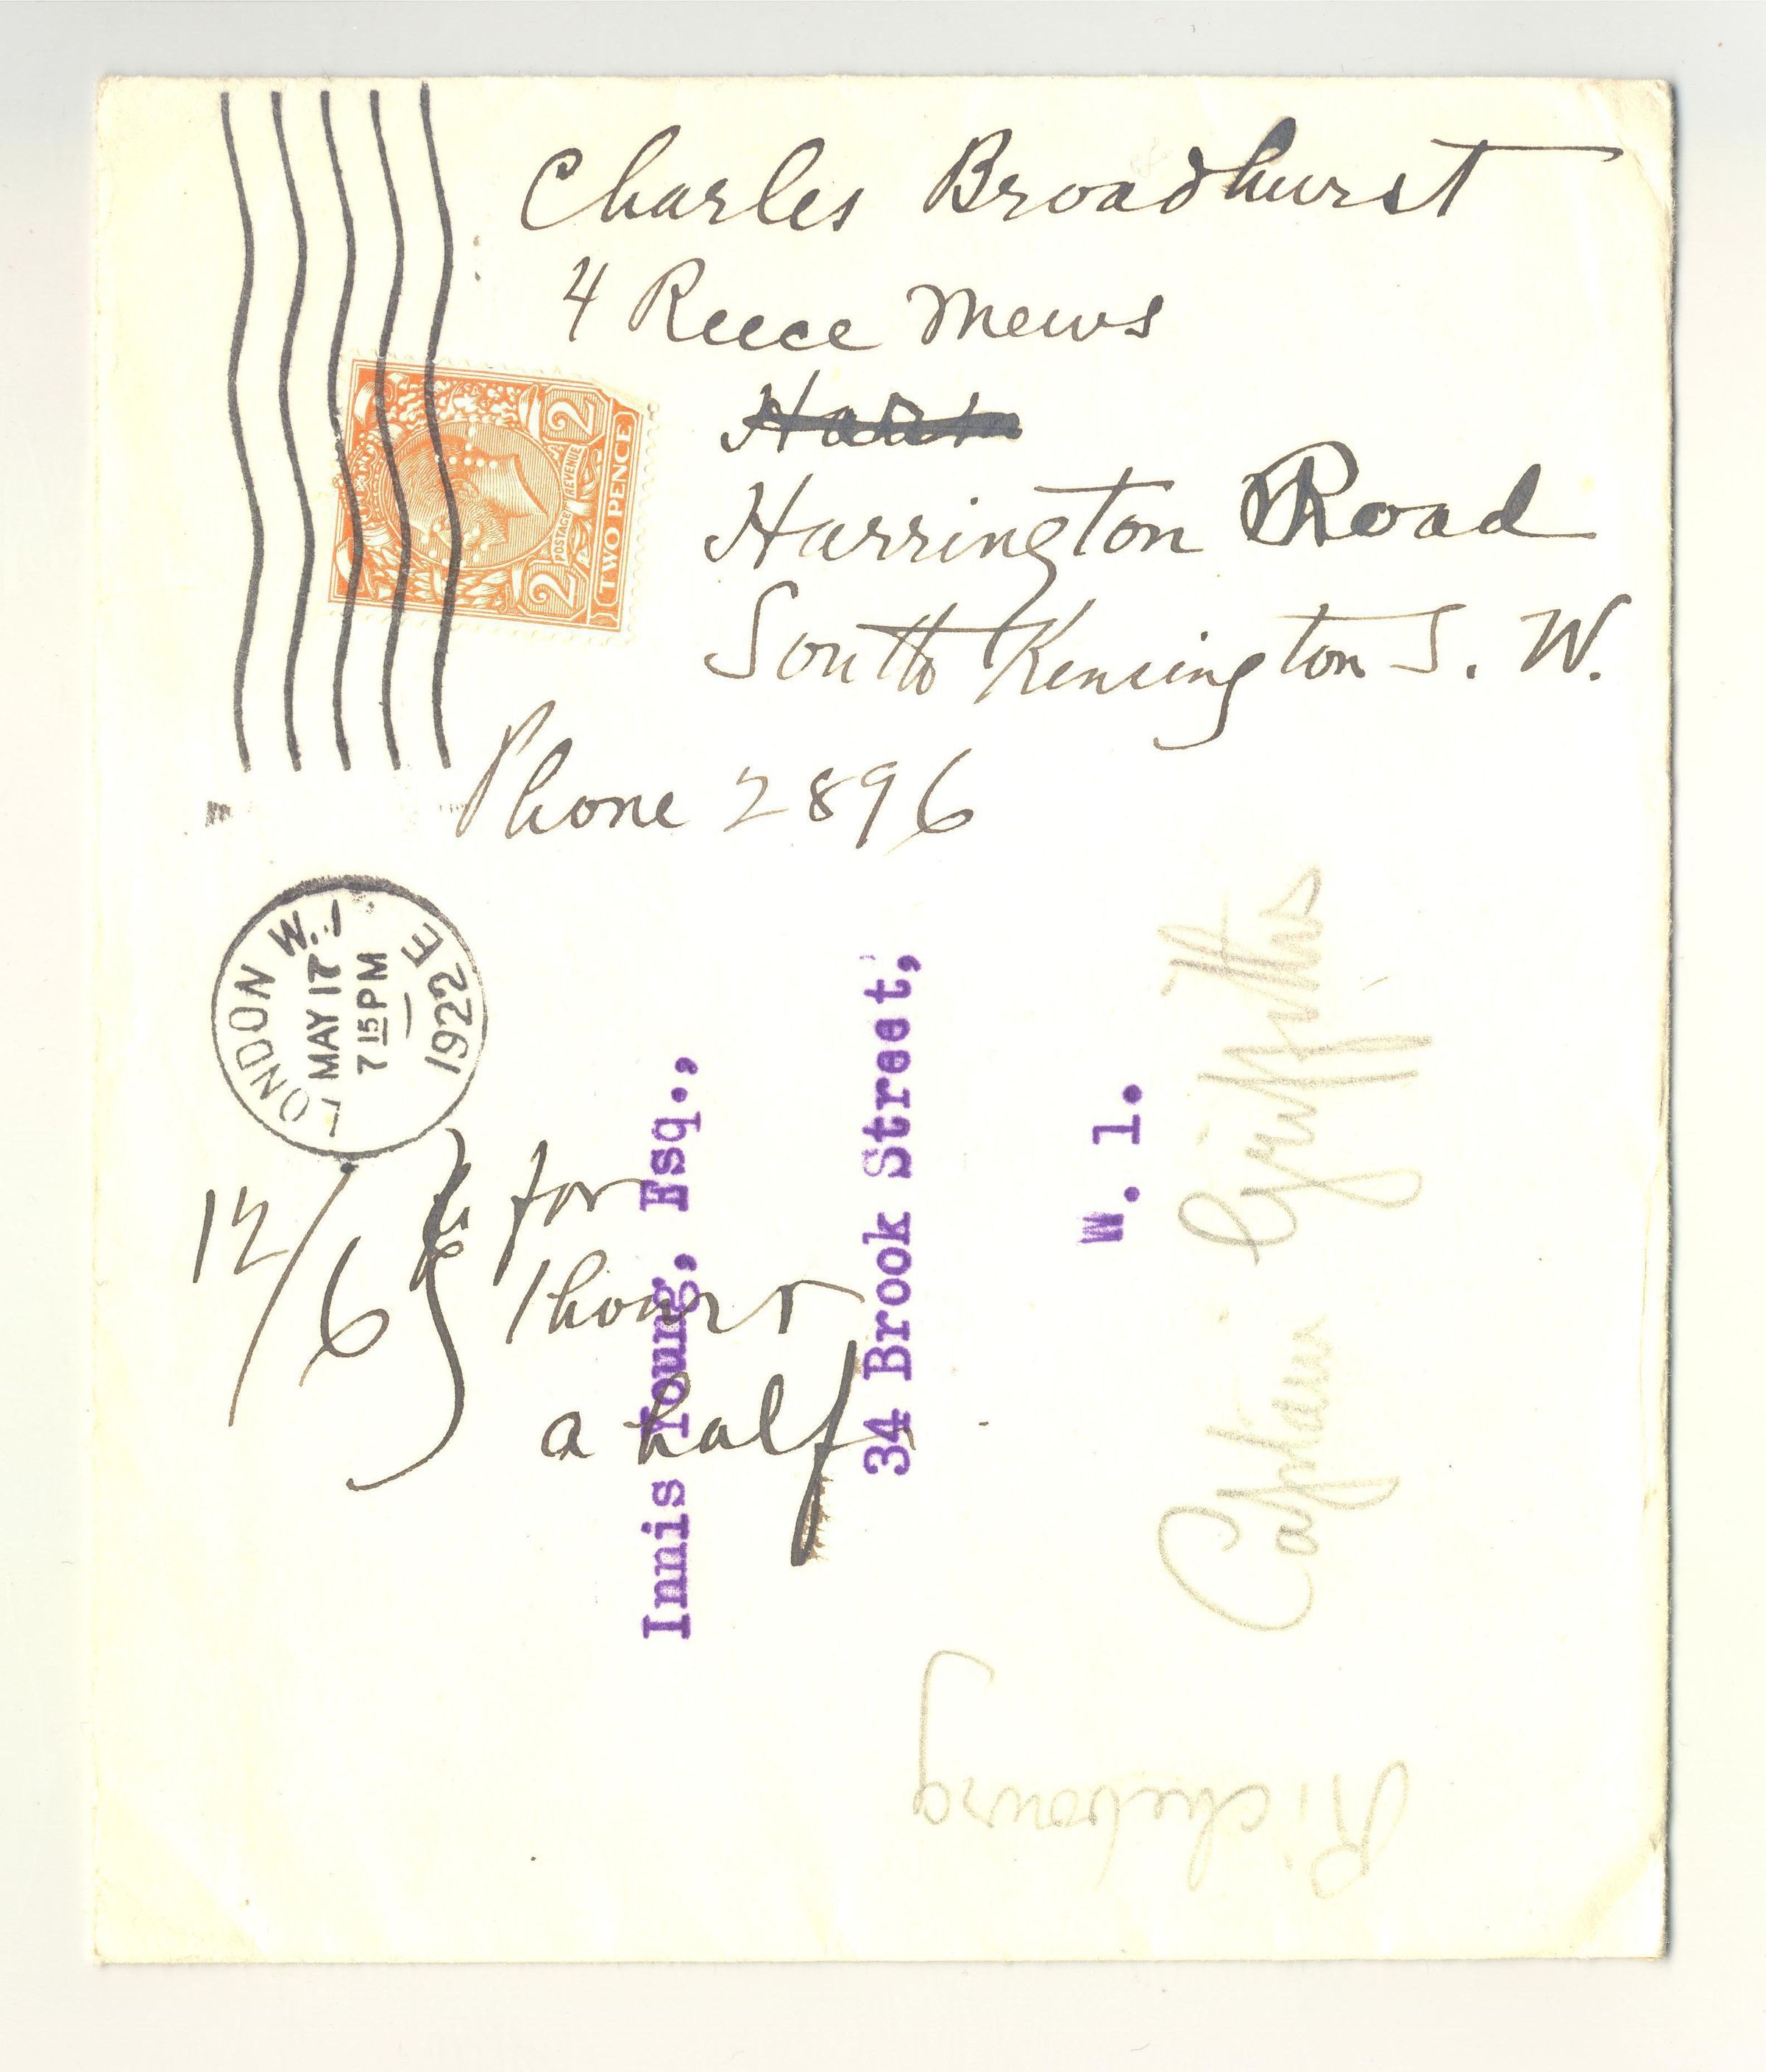 Charles Broadhurst
4 Reece Mews
Harrington Road
South Kensington S. W.
Phone 2896
TWO PENCE
2 POSTAGE REVENUE 2
LONDON W.1
MAY 17
7 15 PM
1922 E
12/6 for
1 hour &
a half
Innis Young, Esq.,
34 Brook Street,
W. 1.
Captain Griffiths
Richebourg